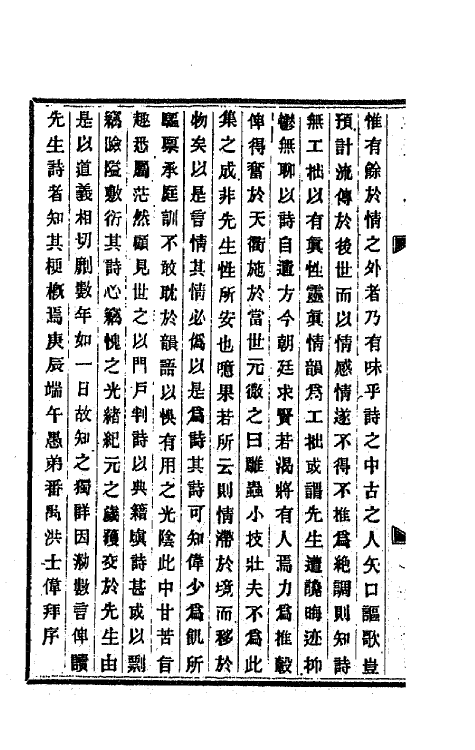 惟有餘於情之外者乃有味乎詩之中古之人矢口謳歌豈
預計流傳於後世而以情感情遂不得不推爲絶調則知詩
無工拙以有眞性靈眞情韻爲工拙或謂先生遭讒晦迹抑
鬱無聊以詩自遣方今朝廷求賢若渴將有人焉力爲推轂
俾得奮於天衢施於當世元微之曰雕蟲小技壯夫不爲此
集之成非先生性所安也噫果若所云則情滯於境而移於
物矣以是言情其情必僞以是爲詩其詩可知偉少爲飢所
驅稟承庭訓不敢耽於韻語以悞有用之光陰此中甘苦旨
趣悉屬茫然顧見世之以門戶判詩以典籍塡詩甚或以剽
竊險隘敷衍其詩心竊愧之光緒紀元之歲獲交於先生由
是以道義相切劘數年如一日故知之獨詳因泐數言俾讀
先生詩者知其梗槪焉庚辰端午愚弟番禺洪士偉拜序